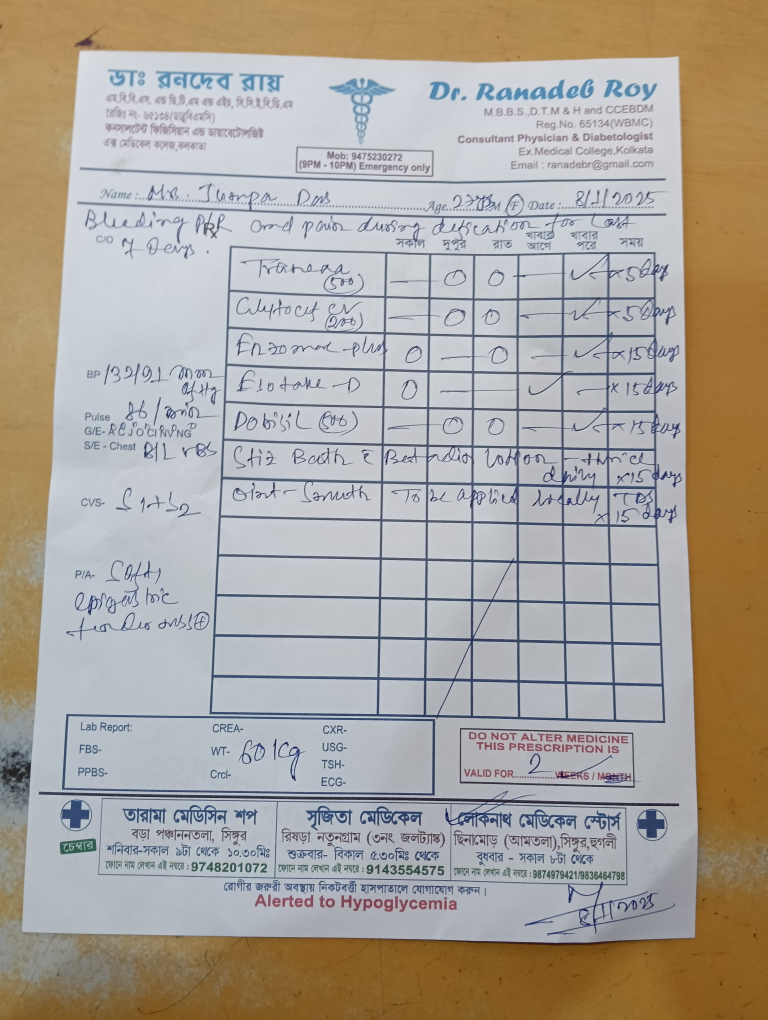 ডাঃ রনদেব রায়
এম.বি.বি.এস. এন্ড ডি.টি.এম এন্ড এইচ, সি.সি.ই.বি.ডি.এম
রেজিঃ নং- ৬৫১৩৪(ডাব্লুবিএমসি)
কনসালটেন্ট ফিজিসিয়ান এন্ড ডায়াবেটোলজিষ্ট
এক্স মেডিকেল কলেজ,কলকাতা
Mob: 9475230272
(9PM - 10PM) Emergency only
Dr. Ranadeb Roy
M.B.B.S.,D.T.M & H and CCEBDM
Reg.No. 65134(WBMC)
Consultant Physician & Diabetologist
Ex.Medical College,Kolkata
Email : ranadebr@gmail.com
Name : Tumpa Das Age M (F) Date : 8/1/2025
Bleeding P/R and pain during defication for last
C/O 7 Days.
সকাল দুপুর রাত খাবার আগে খাবার পরে সময়
(500) — 0 0 — ✓ × 5 Days
(200) — 0 0 — ✓ × 5 Days
Enzomac-plus 0 — 0 — ✓ × 15 Days
BP 132/91
- D 0 — ✓ — × 15 Days
Pulse 86/
(500) — 0 0 — ✓ × 15 Days
G/E-
S/E - Chest B/L VBS
Sitz Bath Betadine lotion - thrice
daily × 15 days
Oint - Smuth To be applied locally TDS
× 15 days
CVS- S1+S2
P/A- Soft,
epigastric
tenderness ⊕
Lab Report: CREA- CXR-
FBS- WT- 60 kg USG-
TSH-
PPBS- Crcl- ECG-
DO NOT ALTER MEDICINE
THIS PRESCRIPTION IS
VALID FOR 2 WEEKS / MONTH
চেম্বার
তারামা মেডিসিন শপ
বড়া পঞ্চাননতলা, সিঙ্গুর
শনিবার-সকাল ৯টা থেকে ১০.৩০মিঃ
ফোনে নাম লেখান এই নম্বরে : 9748201072
সৃজিতা মেডিকেল
রিষড়া নতুনগ্রাম (৩নং জলট্যাঙ্ক)
শুক্রবার- বিকাল ৫.৩০মিঃ থেকে
ফোনে নাম লেখান এই নম্বরে : 9143554575
লোকনাথ মেডিকেল স্টোর্স
ছিনামোড় (আমতলা),সিঙ্গুর,হুগলী
বুধবার - সকাল ৮টা থেকে
ফোনে নাম লেখান এই নম্বরে : 9874979421/9836464798
রোগীর জরুরী অবস্থায় নিকটবর্তী হাসপাতালে যোগাযোগ করুন।
Alerted to Hypoglycemia
8/1/2025